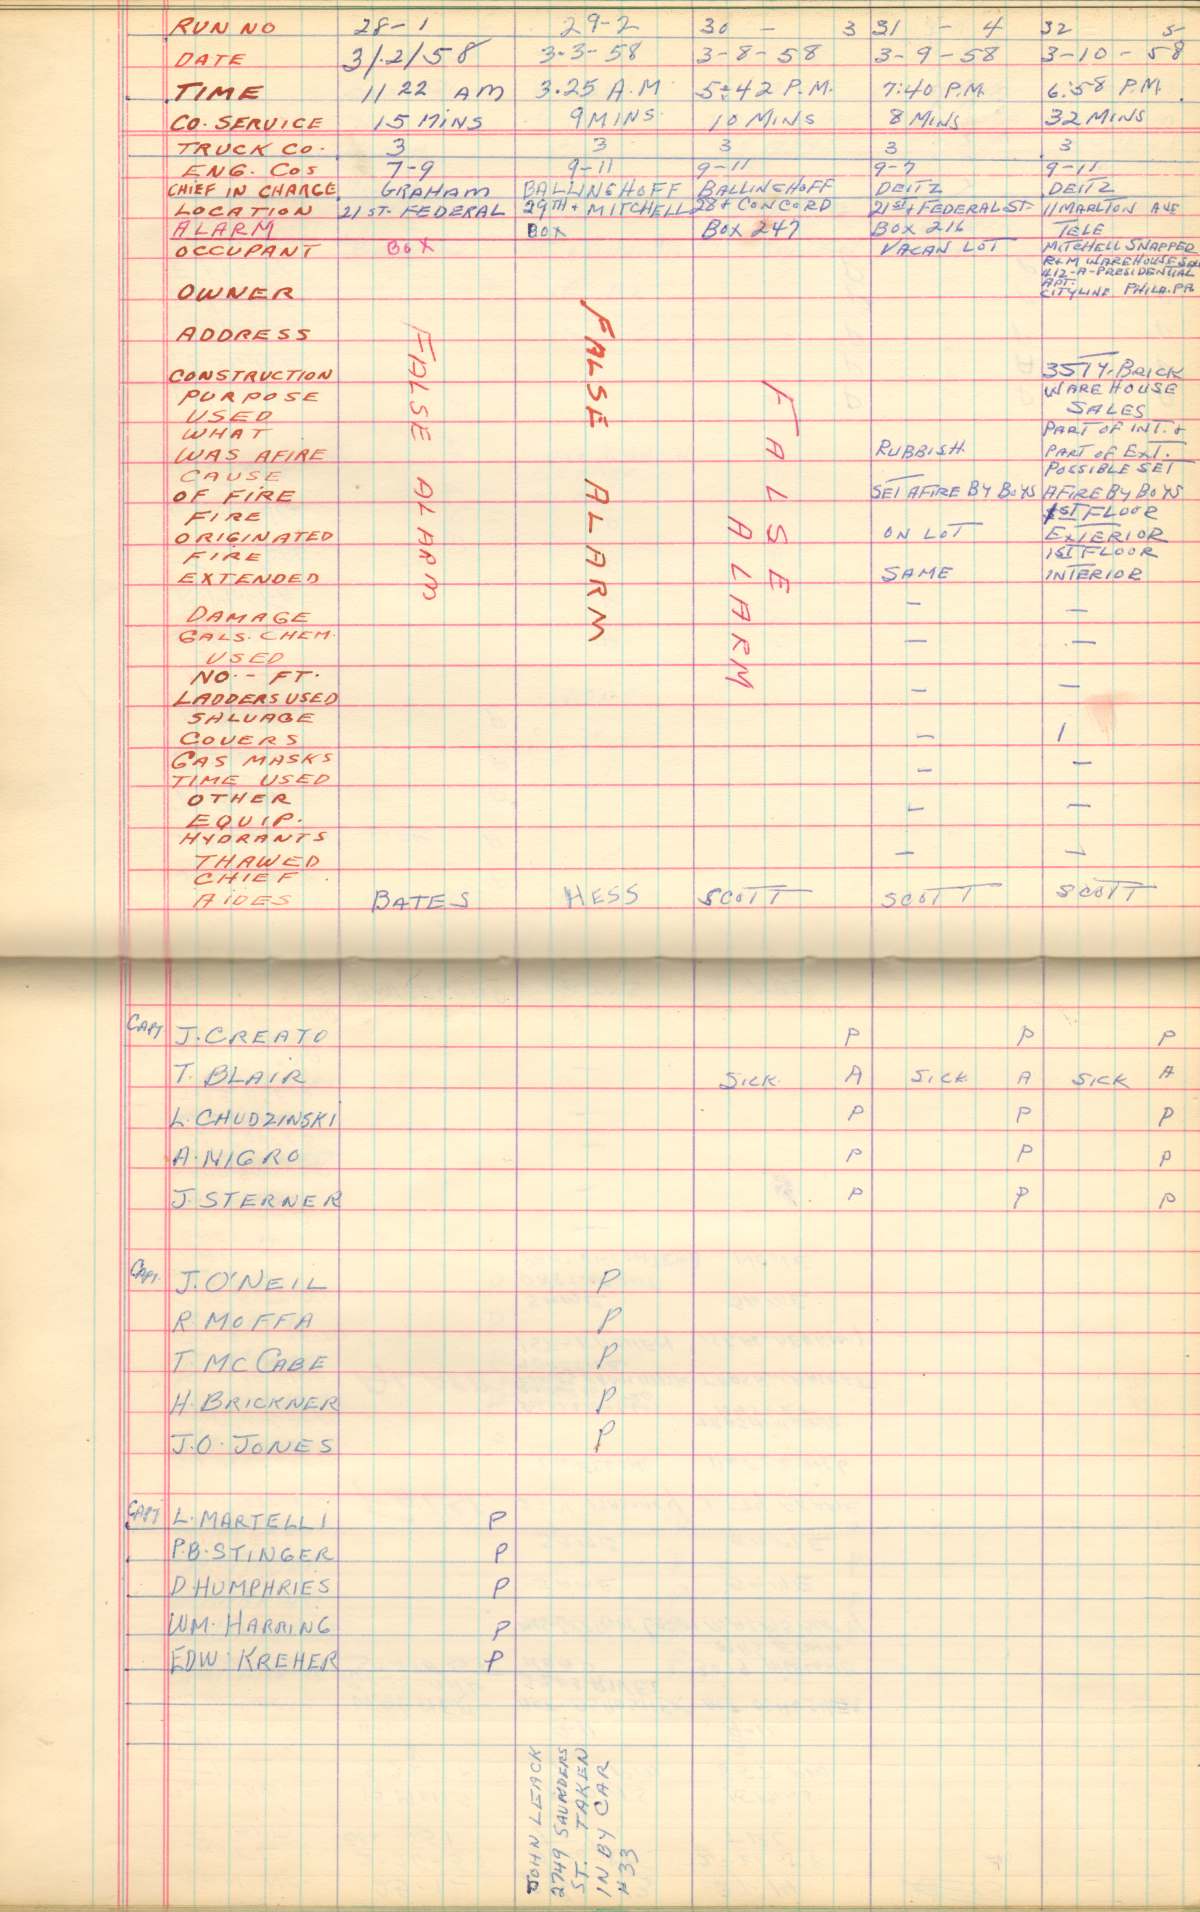 RUN NO 28-1 29-2 30 - 3 31 - 4 32 5
DATE 3/.2/58 3-3-58 3-8-58 3-9-58 3-10-58
TIME 11 22 AM 3.25 A.M 5:42 P.M. 7:40 P.M. 6:58 P.M.
CO. SERVICE 15 MINS 9 MINS. 10 MINS 8 MINS 32 MINS
TRUCK CO. 3 3 3 3 3
ENG. COS 7-9 9-11 9-11 9-7 9-11
CHIEF IN CHARGE GRAHAM BALLINGHOFF BALLINGHOFF DEITZ DEITZ
LOCATION 21 ST. FEDERAL 29TH + MITCHELL 28 + CONCORD 21ST + FEDERAL ST. 11 MARLTON AVE
ALARM BOX BOX 247 BOX 216 TELE
OCCUPANT BOX VACAN LOT MITCHELL SNAPPED
R+M WAREHOUSE SALES
412-A-PRESIDENTIAL
APT.
OWNER CITYLINE PHILA. PA
ADDRESS
CONSTRUCTION 3 STY. BRICK
PURPOSE WAREHOUSE
USED SALES
WHAT PART OF INT. +
WAS AFIRE RUBBISH. PART OF EXT.
CAUSE POSSIBLE SET
OF FIRE SET AFIRE BY BOYS AFIRE BY BOYS
FIRE 1ST FLOOR
ORIGINATED ON LOT EXTERIOR
FIRE 1ST FLOOR
EXTENDED SAME INTERIOR
FALSE ALARM
FALSE ALARM
FALSE ALARM
DAMAGE — —
GALS. CHEM. — —
USED
NO. - FT.
LADDERS USED — —
SALVAGE
COVERS — 1
GAS MASKS — —
TIME USED
OTHER — —
EQUIP.
HYDRANTS
THAWED — —
CHIEF
AIDES BATES HESS SCOTT SCOTT SCOTT
CAPT J. CREATO P P P
T. BLAIR SICK A SICK A SICK A
L. CHUDZINSKI P P P
A. NIGRO P P P
J. STERNER P P P
CAPT. J. O'NEIL P
R MOFFA P
T MCCABE P
H. BRICKNER P
J.O. JONES P
CAPT L. MARTELLI P
P.B. STINGER P
D HUMPHRIES P
WM. HARRING P
EDW. KREHER P
JOHN LEACK
2749 SAUNDERS
ST. TAKEN
IN BY CAR
#33